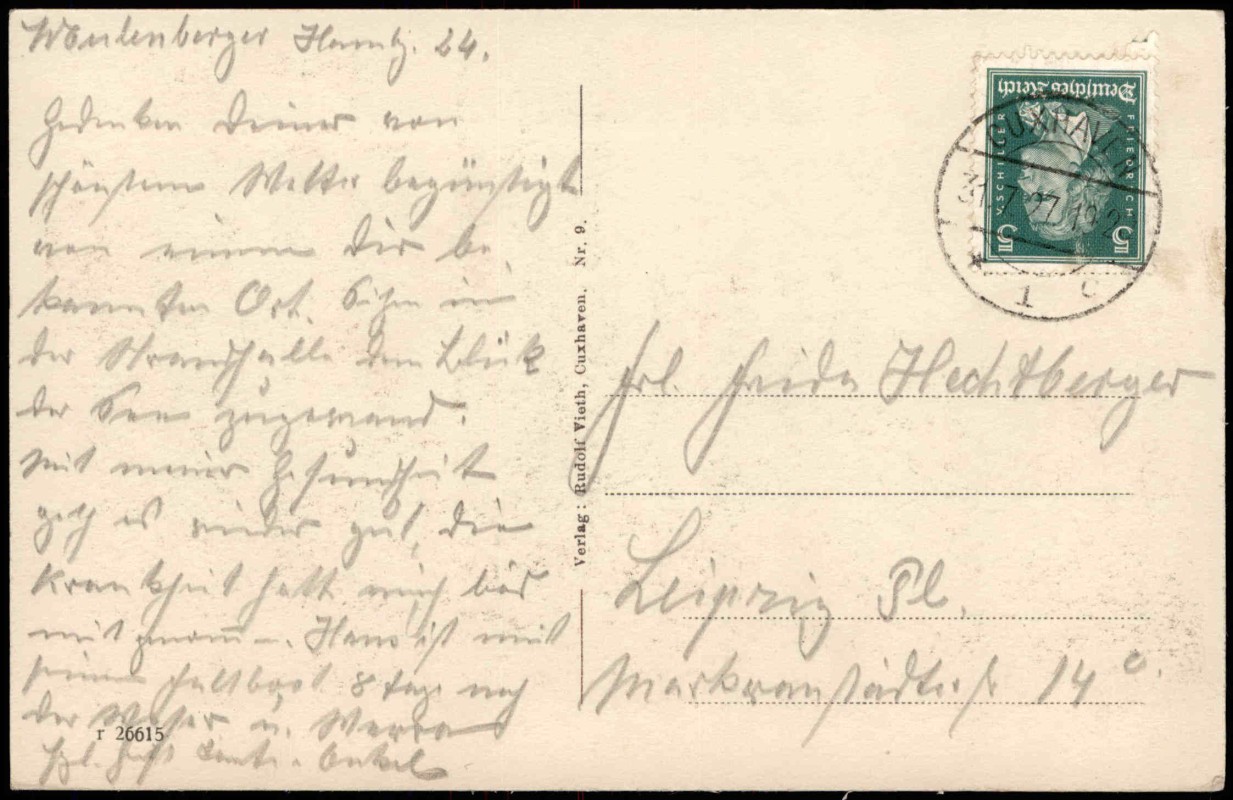 Weulenberger Hamb. 24.
Gedenken Deiner von
schönstem Wetter begünstigt
von einem Dir be
kannten Ort. Sitzen in
der Strandhalle dem Blick
der See zugewand.
Mit meiner Gesundheit
geth es wieder gut, die
Krankheit hatt mich bös
mitgenomm̄en. Hans ist mit
seinem Faltboot 8 Tage nach
der Weser u. Werra
hzl. Grß Tante u. Onkel
r 26615
Verlag: Rudolf Vieth, Cuxhaven. Nr. 9.
Deutsches Reich
FRIEDRICH
V. SCHILLER
5
5
CUXHAVEN
31.7.27.
* 1 c
Frl. Frieda Hechtberger
Leipzig Pl.
Markranstädterstr 14 c.